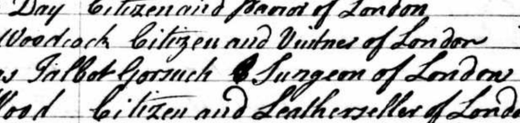 Day Citizen and parior of London
Woodcock Citizen and Vintner of London
Talbot Gorsuch Surgeon of London
Wood Citizen and Leatherseller of London